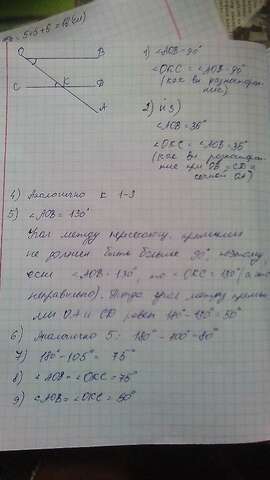 = 5+5+6 = 16 (см)
O
B
C
K
D
A
1) ∠AOB = 90°
∠OKC = ∠AOB = 90°
(как вн
2) и 3)
∠AOB = 35°
∠OKC = ∠AOB = 35°
(как вн
при OB ∥ CD и
OA)
4) Аналогично к 1-3
5) ∠AOB = 130°
Угол между пересекающ. прямыми
не должен быть больше 90° поэтому
если ∠AOB = 130°, то ∠OKC = 130° (а это
неправильно). Тогда угол между прямы-
ми OA и CD равен 180° - 130° = 50°
6) Аналогично 5: 180° - 100° = 80°
7) 180° - 105° = 75°
8) ∠AOB = ∠OKC = 75°
9) ∠AOB = ∠OKC = 50°